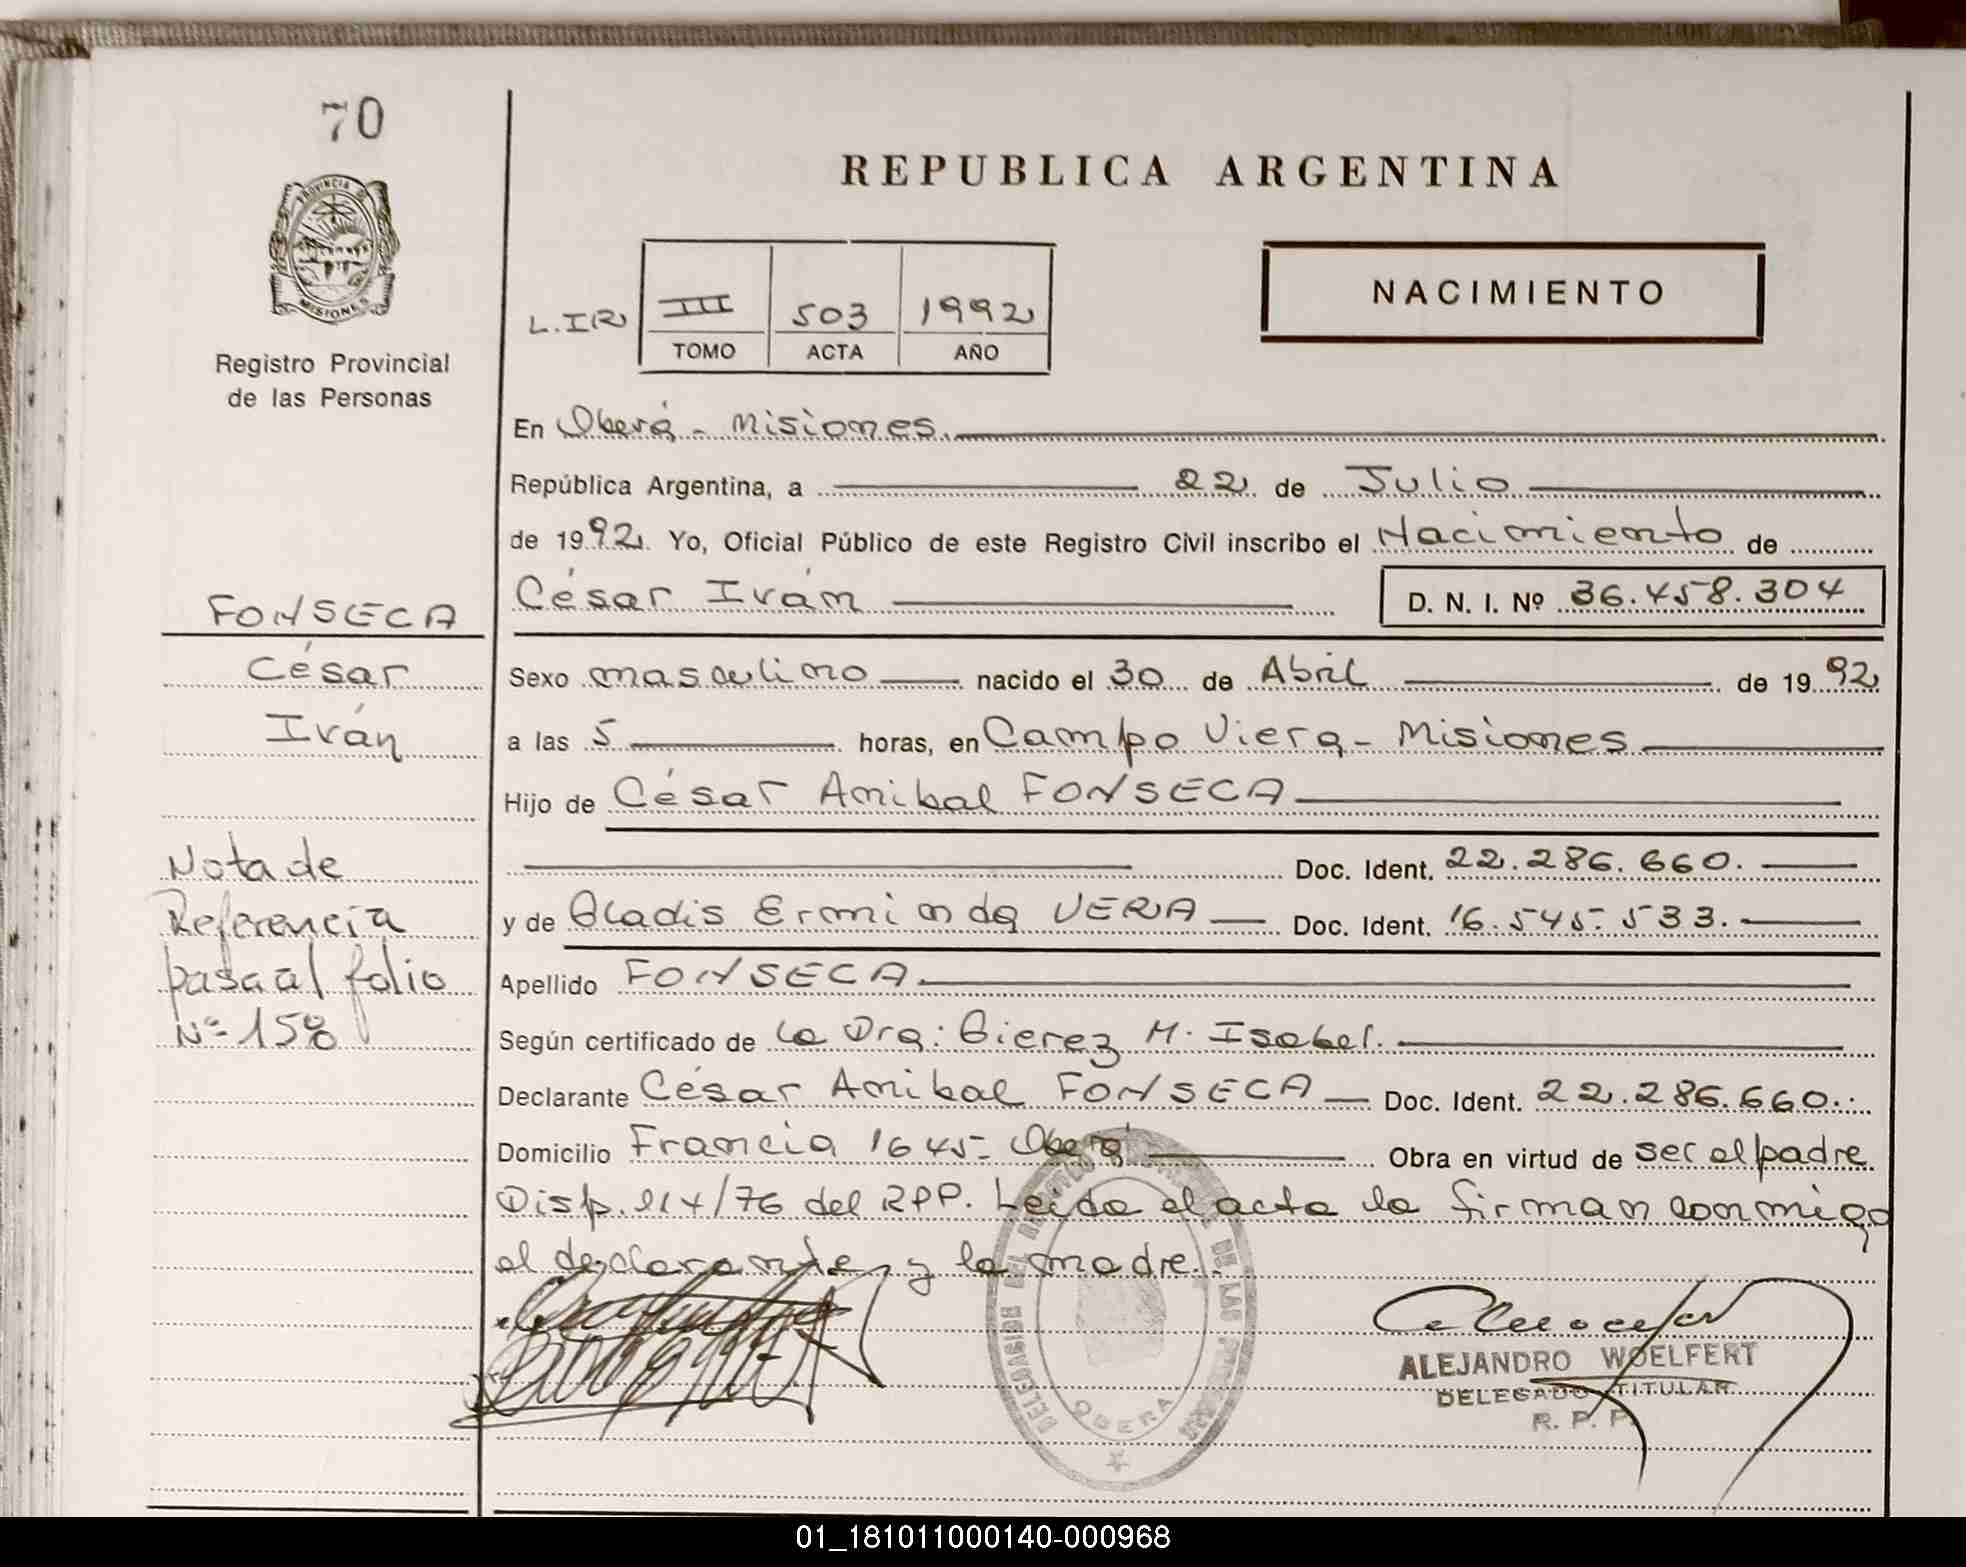 70
REPUBLICA ARGENTINA
PROVINCIA DE MISIONES
Registro Provincial
de las Personas
L.IR III 503 1992
TOMO ACTA AÑO
NACIMIENTO
En Oberá - Misiones.
República Argentina, a 22 de Julio
de 1992. Yo, Oficial Público de este Registro Civil inscribo el Nacimiento de
FONSECA
César Iván D. N. I. Nº 36.458.304
César
Sexo masculino nacido el 30 de Abril de 1992
Iván
a las 5 horas, en Campo Viera - Misiones
Hijo de César Anibal FONSECA
Nota de
Doc. Ident. 22.286.660.
Referencia
y de Gladis Erminda VERA Doc. Ident. 16.545.533.
pasa al folio
Apellido FONSECA
Nº 158
Según certificado de la Dra: Gierez M. Isabel.
Declarante César Anibal FONSECA Doc. Ident. 22.286.660.
Domicilio Francia 1645 - Oberá Obra en virtud de ser el padre
Disp. 214/76 del RPP. Leída el acta la firman conmigo
el declarante y la madre.
DE LAS PERSONAS
OBERA
ALEJANDRO WOELFERT
DELEGADO TITULAR
R. P. P.
01_181011000140-000968